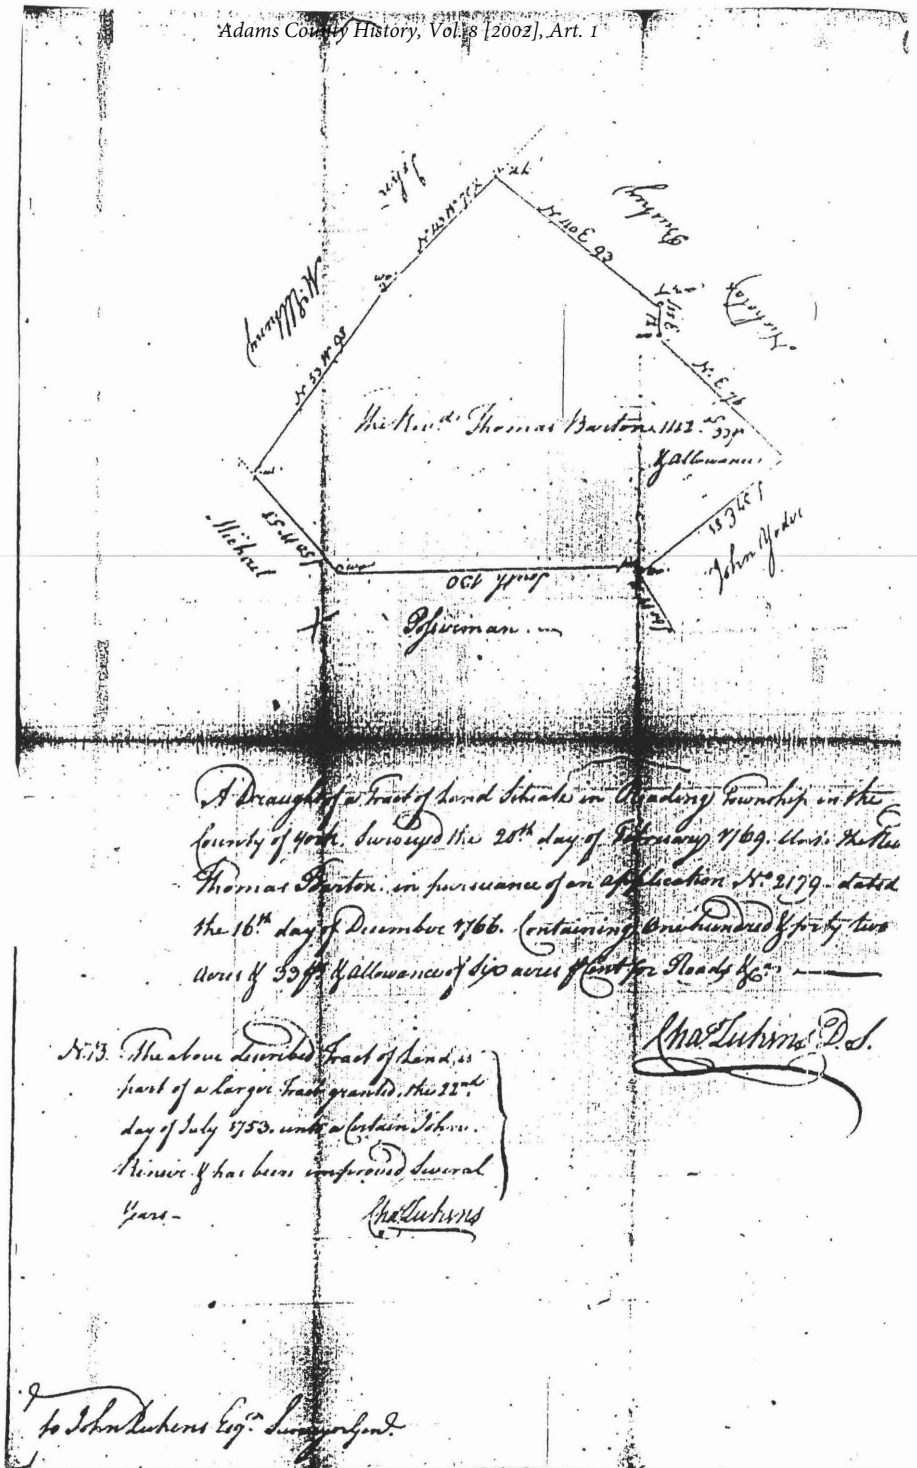 Adams County History, Vol. 8 [2002], Art. 1
John
Bushey
Nicholas
N 40 E 92
N. 53 W. 98
N. E 76
The Revd. Thomas Barton. 142. as 33 ps
& allowance.
S 50 W 53
Michael
South 150
S 37 E 81
John Yoder
A Draught of a Tract of Land Situate in Reading Township in the
County of York. Surveyed the 20th day of February 1769. Unto the Rev
Thomas Barton. in pursuance of an application No. 2179. dated
the 16th day of December 1766. Containing One hundred & forty two
acres & 33 ps & allowance of Six acres P Cent for Roads &ca.
Chas Lukens D. S.
N.B. The above described Tract of Land is
part of a larger Tract granted, the 22nd.
day of July 1753. unto a Certain John
& has been improved Several
Years -
Chas Lukens
to John Lukens Esqr. Surveyor Genl.